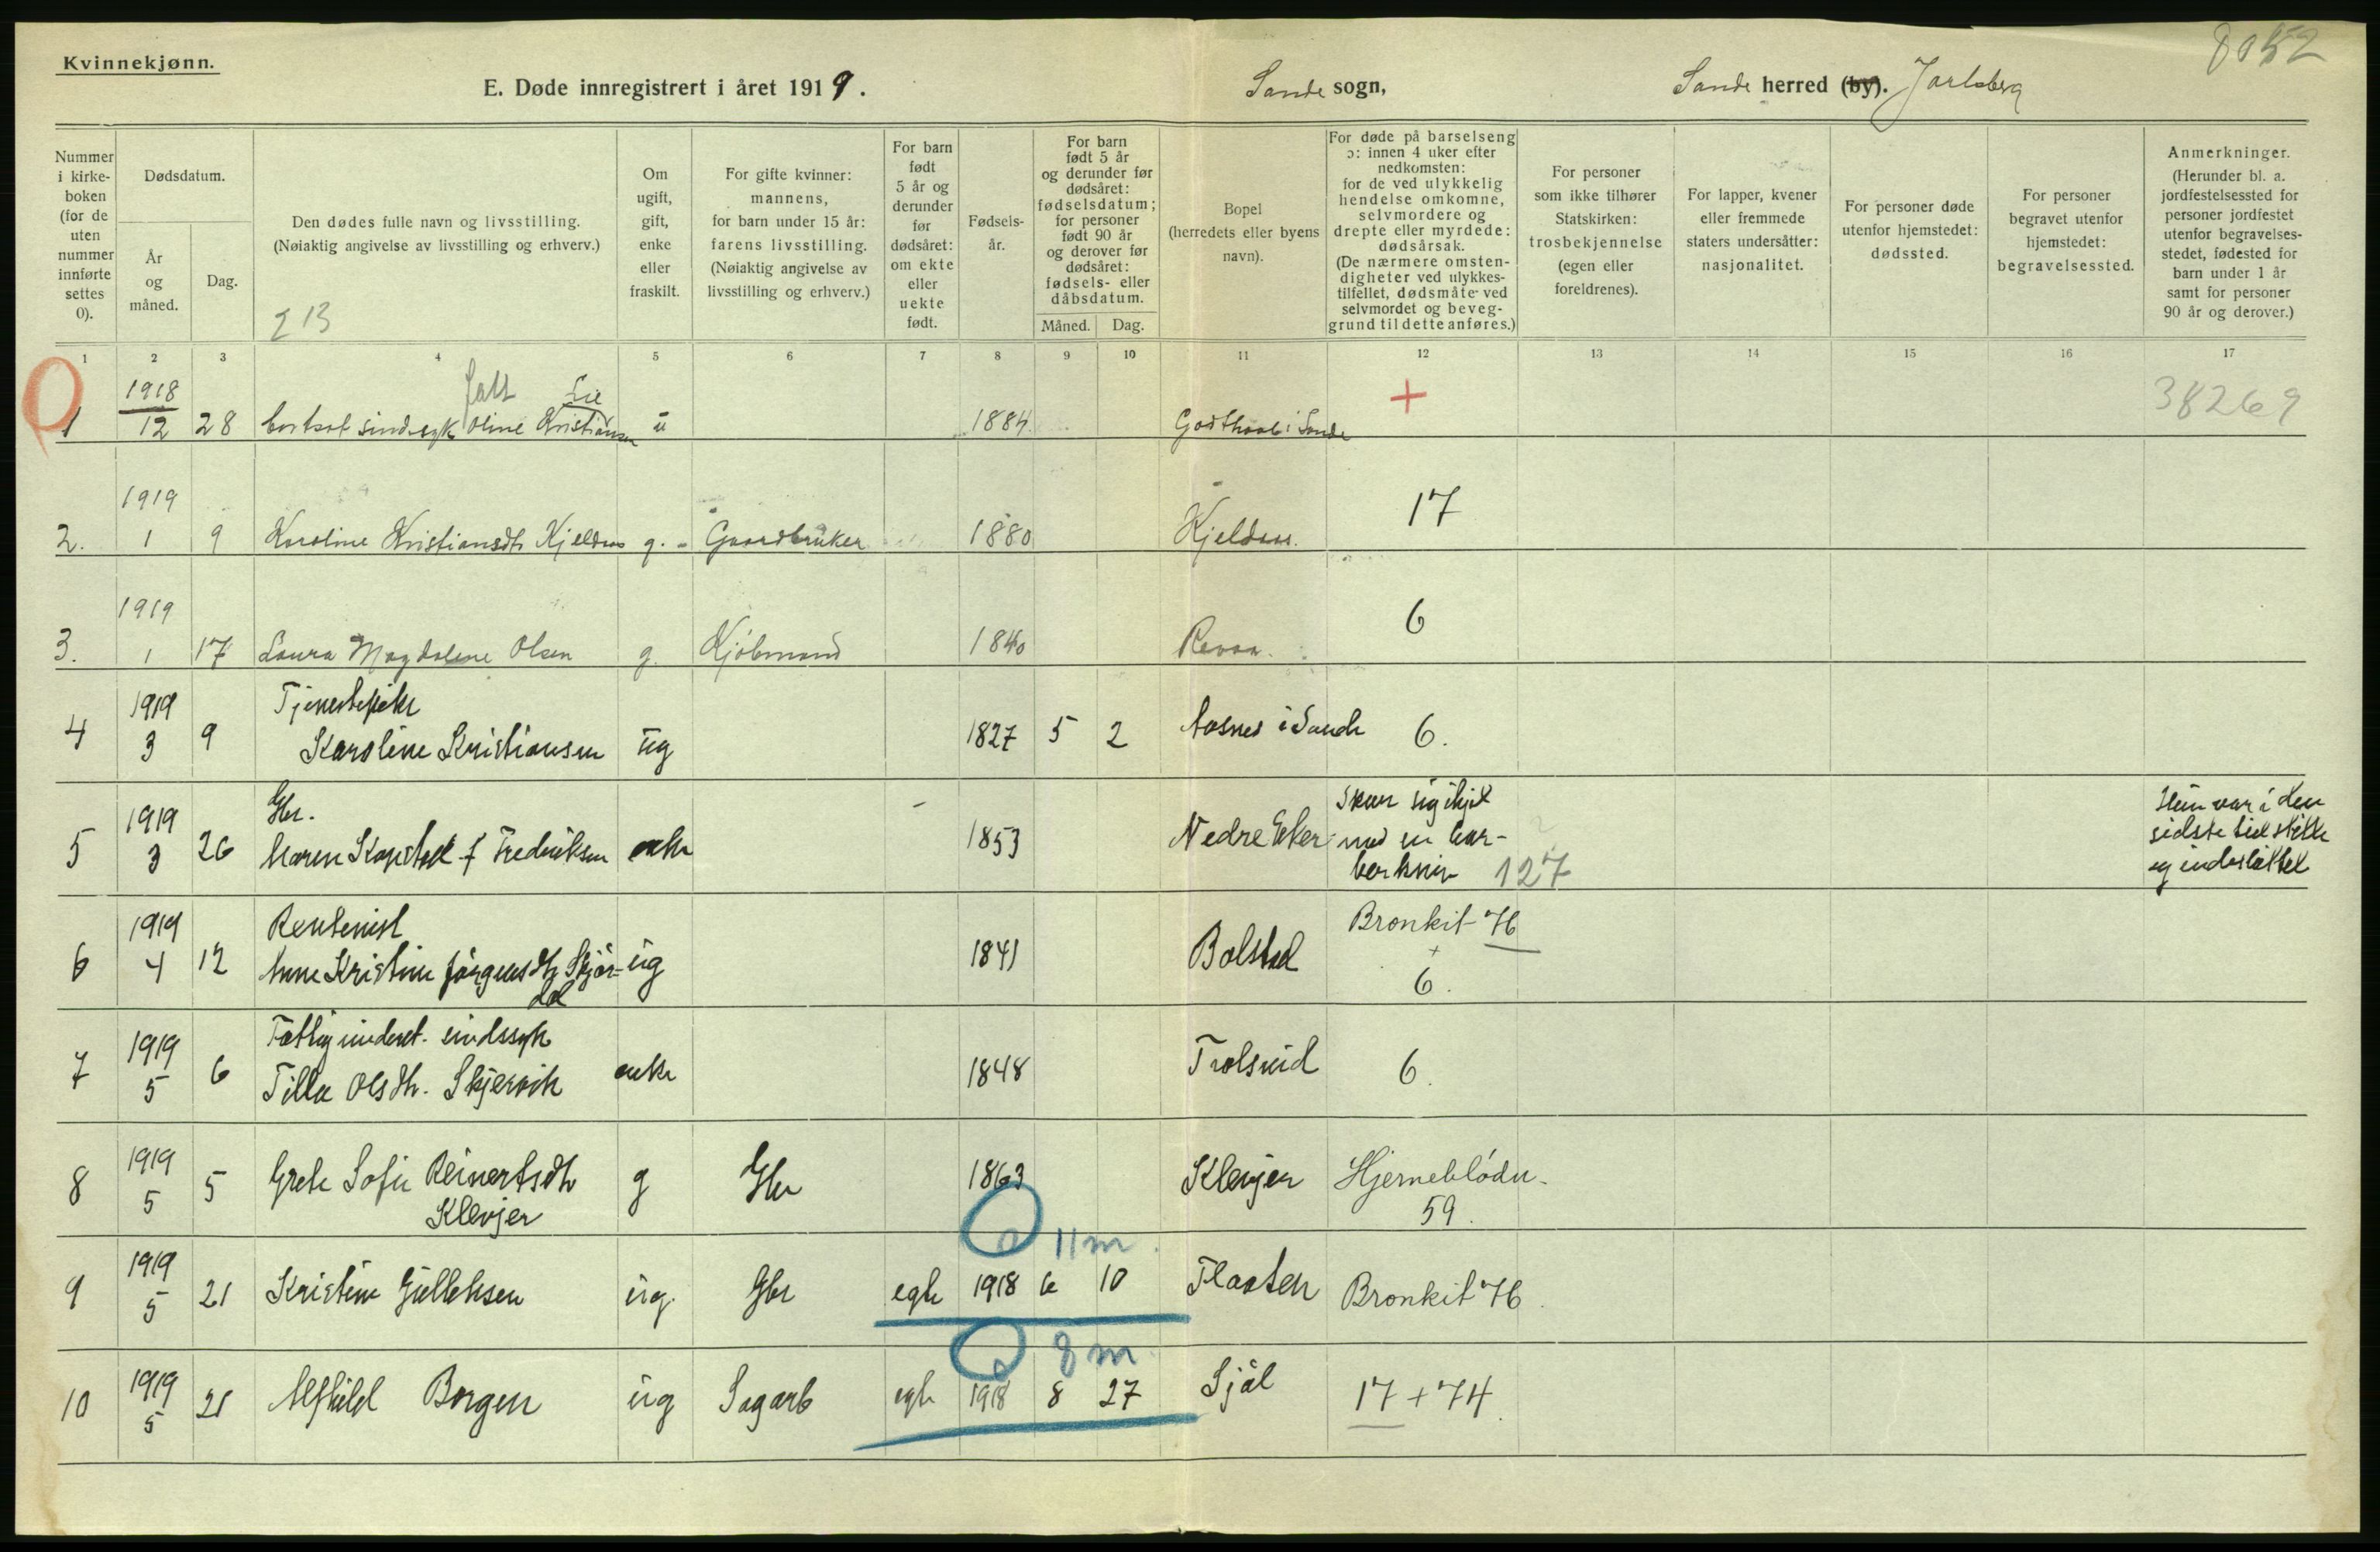 8052
Kvinnekjønn.
E. Døde innregistrert i året 1919.
Sande sogn,
Sande herred (by). Jarlsberg
Nummer
i kirke-
boken
(for de
uten
nummer
innførte
settes
0).
Dødsdatum.
År
og
måned.
Dag.
Den dødes fulle navn og livsstilling.
(Nøiaktig angivelse av livsstilling og erhverv.)
213
Om
ugift,
gift,
enke
eller
fraskilt.
For gifte kvinner:
mannens,
for barn under 15 år:
farens livsstilling.
(Nøiaktig angivelse av
livsstilling og erhverv.)
For barn
født
5 år og
derunder
før
dødsåret:
om ekte
eller
uekte
født.
Fødsels-
år.
For barn
født 5 år
og derunder før
dødsåret:
fødselsdatum;
for personer
født 90 år
og derover før
dødsåret:
fødsels- eller
dåbsdatum.
Måned. Dag.
Bopel
(herredets eller byens
navn).
For døde på barselseng
ɔ: innen 4 uker efter
nedkomsten:
for de ved ulykkelig
hendelse omkomne,
selvmordere og
drepte eller myrdede:
dødsårsak.
(De nærmere omsten-
digheter ved ulykkes-
tilfellet, dødsmåte ved
selvmordet og beveg-
grund til dette anføres.)
For personer
som ikke tilhører
Statskirken:
trosbekjennelse
(egen eller
foreldrenes).
For lapper, kvener
eller fremmede
staters undersåtter:
nasjonalitet.
For personer døde
utenfor hjemstedet:
dødssted.
For personer
begravet utenfor
hjemstedet:
begravelsessted.
Anmerkninger.
(Herunder bl. a.
jordfestelsessted for
personer jordfestet
utenfor begravelses-
stedet, fødested for
barn under 1 år
samt for personer
90 år og derover.)
1 2 3 4 5 6 7 8 9 10 11 12 13 14 15 16 17
1918 Lie + 38269
1 12 28 sindssyk Oline Kristiansen u 1884 Godthaab i Sande
1919 17
2. 1 9 Karoline Kristiansdt Kjeldaas g. - Gaardbruker 1880 Kjeldaas.
1919 6
3. 1 17 Laura Magdalene Olsen g. Kjöbmand 1840 Revaa.
1919 Tjenestepike
4 3 9 Karoline Kristiansen ug 1827 5 2 Aasnes i Sande 6.
1919 Gbr. Skar sig ihjel Hun var i den
5 3 26 Maren f Fredriksen enke 1853 Nedre Eker med en bar- sidste tid stille
berkniv 127 og indesluttet
1919 Rentenist Bronkit 76
6 4 12 Anne Kristine Jörgensdtr Skjör- ug 1841 Bolstad +
dal 6.
1919 Fattigunderst. sindssyk
7 5 6 Tilla Olsdtr. Skjervik enke 1848 6.
1919
8 5 5 Grete Sofie Reinertsdtr g Gbr 1863 Klevjer Hjerneblödn.
Klevjer 59.
11 m.
1919
9 5 21 Kristine Gulliksen ug. Gbr egte 1918 6 10 Flaaten Bronkit 76.
8 m.
1919
10 5 21 Alfhild Borgen ug Sagarb egte 1918 8 27 Sjål 17 + 74.